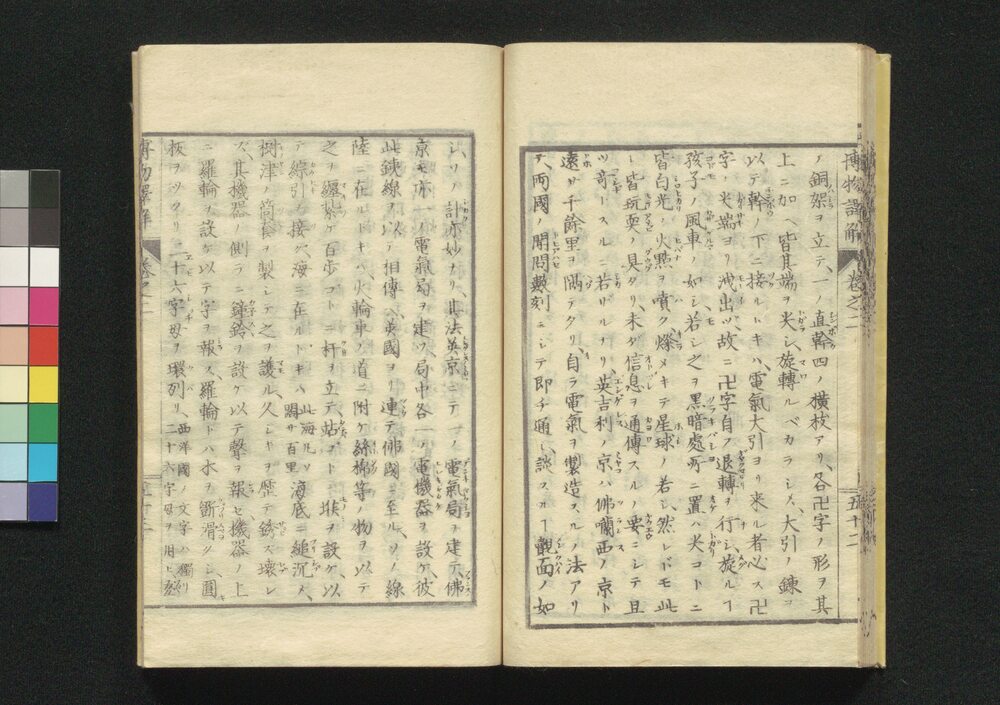 博物譯解 巻之二 五十二
ノ銅架ヲ立テ、一ノ直幹四ノ横枝アリ、各卍字ノ形ヲ其
上ニ加ヘ皆其端ヲ尖シ、旋轉ルベカラシメ、大引ノ鍊ヲ
以テ幹ノ下ニ接ルトキハ、電氣大引ヨリ来ル者必ス卍
字ノ尖端ヨリ洩出ツ、故ニ卍字自ラ退轉ヲ行シ、旋ルヿ
孩子ノ風車ノ如シ若シ之ヲ黒暗處所ニ置ハ尖コトニ
皆白光ノ火點ヲ噴ク燦メキテ星球ノ若シ、然レドモ此
レ皆玩耍ノ具タリ、未ダ信息ヲ通傳スルノ要ニシテ且
ツ奇ースルニ若ザルナリ、英吉利ノ京ハ佛嘞西ノ京ト
遠サ千餘里ヲ隅テタリ自ラ電氣ヲ製造スルノ法アリ
テ、両國ノ開問數刻ニシテ即チ通シ、談スルヿ覿面ノ如
シ、ソノ計亦妙ナリ、其法英京ニテ一ノ電氣局ヲ建テ、佛
京モ亦一ノ電氣局ヲ建ツ、局中各一ノ電機器ヲ設ケ、彼
此鉄線ヲ以テ相傳ヘ英國ヨリ連テ佛國ニ至ル、ソノ線
陸ニ在ルトキハ、火輪車ノ道ニ附ケ絲棉等ノ物ヲ以テ
之ヲ纒紮ケ百歩コトニ杆ヲ立テ、站コトニ堠ヲ設ケ、以
テ線引ヲ接ヘ海ニ在ルトキハ此海凡ソ濶サ百里海底ニ縋沉メ、
樹津ノ筒套ヲ製シテ之ヲ護ル、久シキヲ歴テ銹ス壞レ
ズ、其機器ノ側ラニ鐘鈴ヲ設ケ以テ聲ヲ報セ機器ノ上
ニ羅輪ヲ設ケ以テ字ヲ報ス、羅輪トハ木ヲ斲滑クシ、圓
板ヲツクリ二十六字母ヲ環列リ、西洋國文字ハ獨リ二十六字母ヲ用ヒ
博物譯解 巻之二